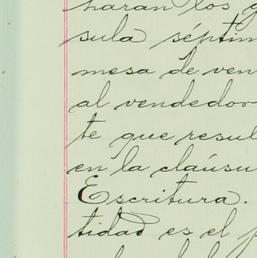 harán los
sula séptim
mesa de ven
al vendedor
te que resul
en la cláusu
Escritura.
tidad es el